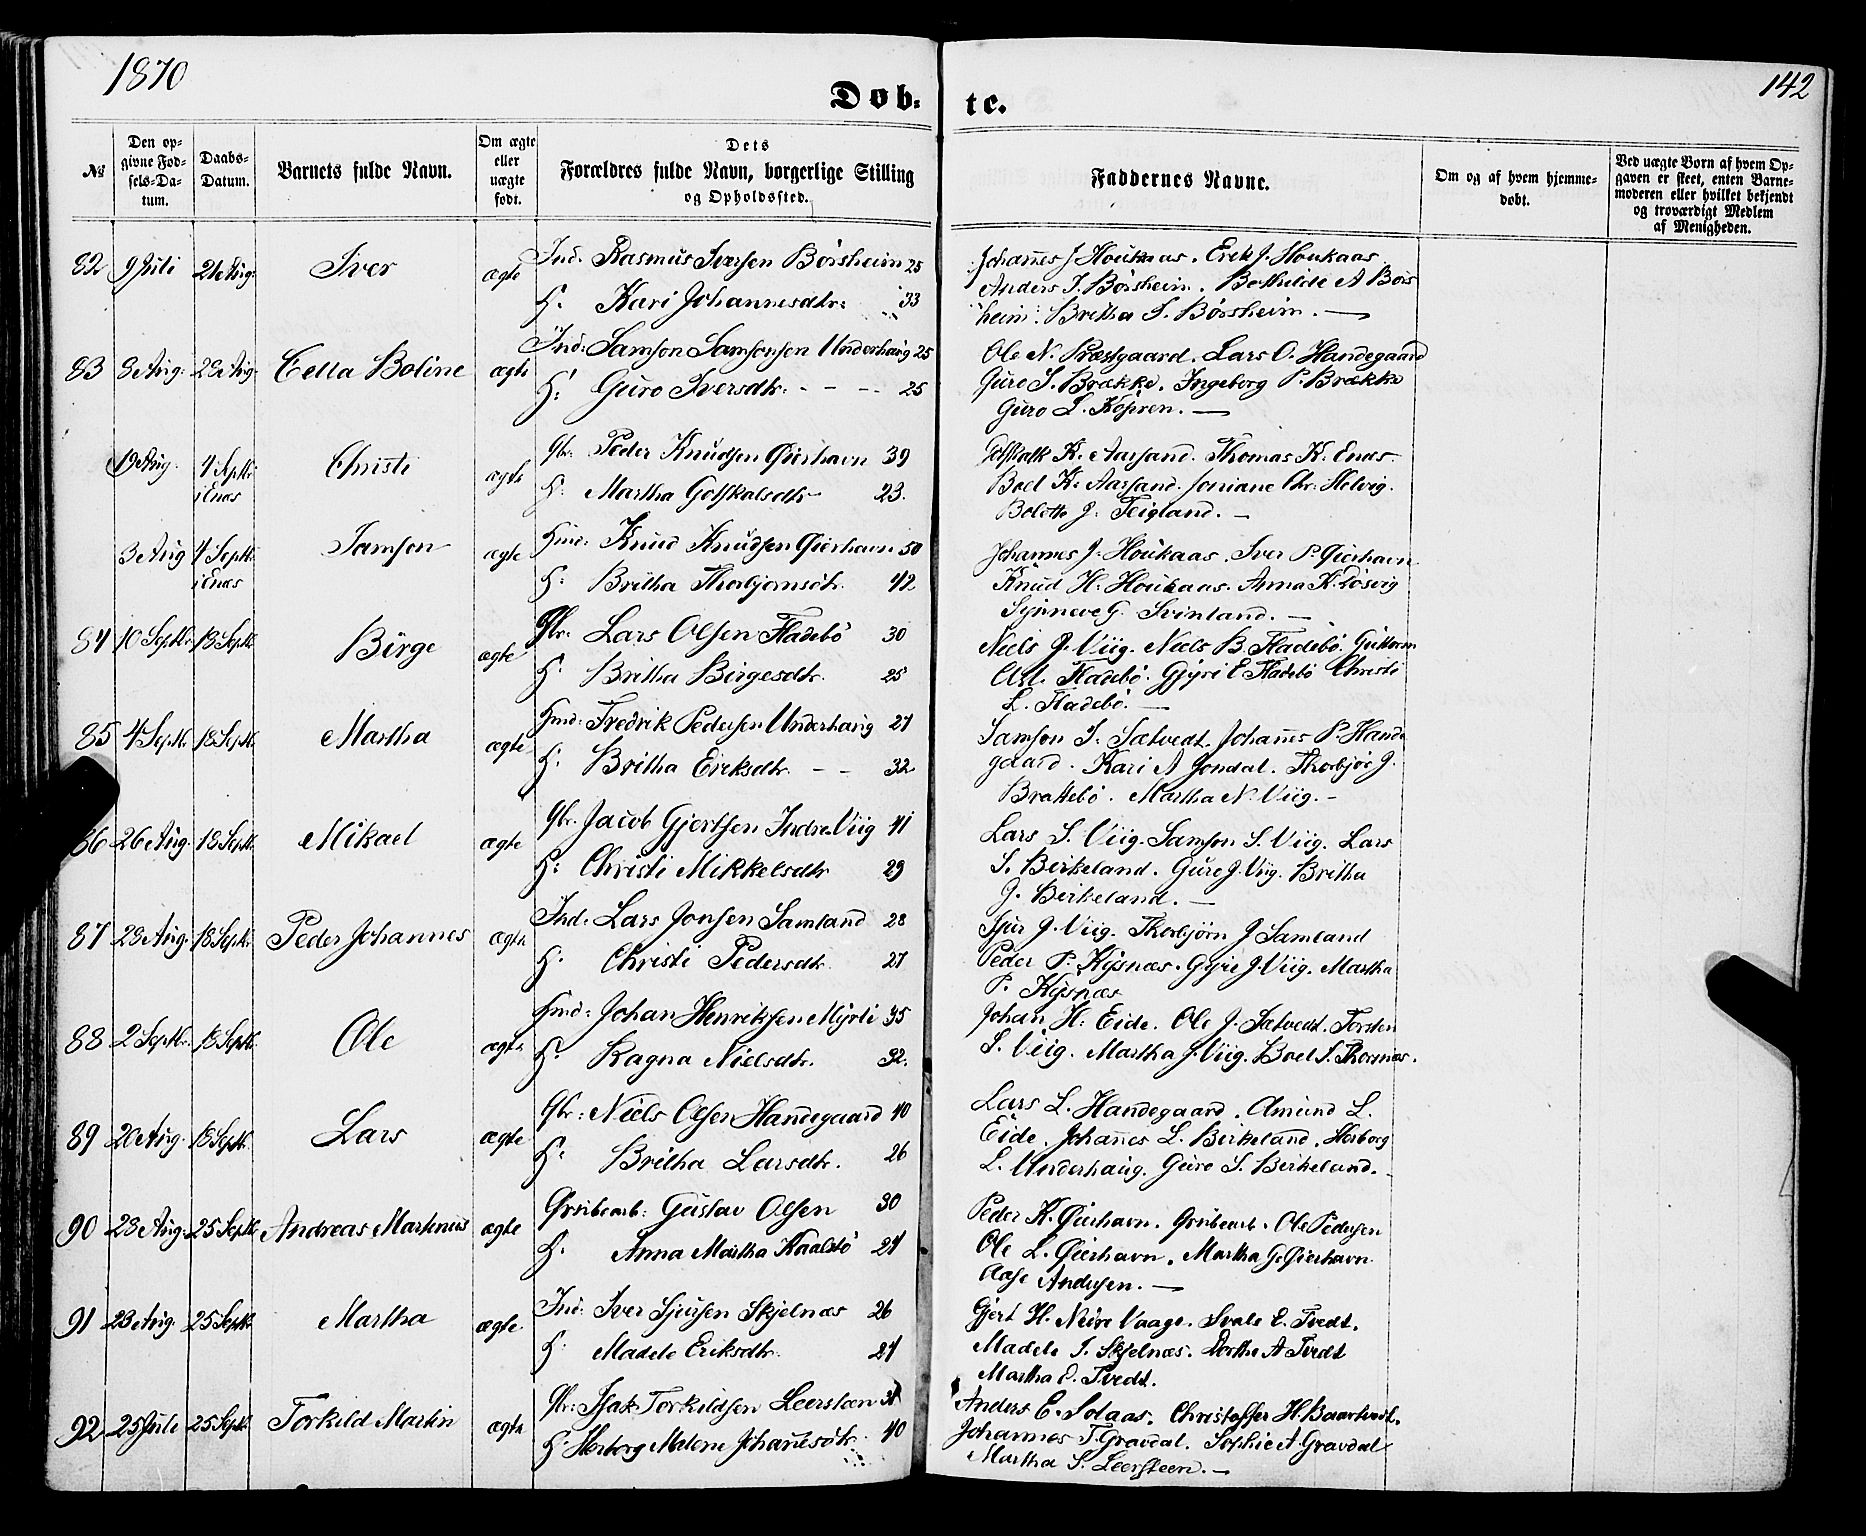 1870
142
Døb- te.
№
Den op-
givne Fød-
sels-Da-
tum.
Daabs-
Datum.
Barnets fulde Navn.
Om ægte
eller
uægte
født.
Dets
Forældres fulde Navn, borgerlige Stilling
og Opholdssted.
Faddernes Navne.
Om og af hvem hjemme-
døbt.
Ved uægte Børn af hvem Op-
gaven er skeet, enten Barne-
moderen eller hvilket bekjendt
og troværdigt Medlem
af Menigheden.
82 9 Juli 21 Aug. Iver ægte Ind. Rasmus Iversen Børsheim 25
H: Kari Johannesdtr: 33
Johannes J Houkaas. Erik J. Houkaas
Anders I. Børsheim. Bothilde A Børs
heim. Britha S. Børsheim. —
83 8 Aug. 28 Aug. Cella Boline ægte Ind: Samson Samsonsen Underhaug 25
H: Guro Iversdtr: - - -- 25
Ole N. Præstgaard. Lars O. Handegaard
Guro S. Brække. Ingeborg P. Brække
Guro L. Kopren. —
19 Aug. 4 Septb: Christi ægte Gbr: Peder Knudsen Øierhavn 39
i Enæs
H: Martha Golskalsdtr 23.
K. Aarsand. Thomas K. Enæs.
Boel K. Aarsand. Chr. Helvig.
J. Teigland. —
3 Aug 4 Septb. Samson ægte Hmd: Knud Knudsen Øierhavn 50
i Enæs
H: Britha Thorbjørnsdtr. 42
Johannes J. Houkaas. Iver P. Øierhavn
Knud H. Houkaas. Anna K. Røsvig
Synneve G. Svinland. —
84 10 Septb. 18 Septb. Børge ægte Gbr: Lars Olsen Fladebø 30
H: Britha Børgesdtr. 25
Niels J. Viig. Niels B. Fladebø. Guttorm
Fladebø. Gjyri E Fladebø Christi
L. Fladebø. —
85 4 Septb. 18 Septb. Martha ægte Hmd: Fredrik Pedersen Underhaug 27
H: Britha Eriksdtr. - - 32
Samson S. Sætvedt. Johannes P. Hande
gaard. Kari A Jondal. Thorbjør J.
Brattebø. Martha N. Viig. -
86 26 Aug. 18 Septb. Mikael ægte Gbr. Jacob Gjertsen Indre Viig 41
H: Christi Mikkelsdtr 29
Lars S. Viig. Samson S. Viig. Lars
S. Birkeland. Guro J. Viig. Britha
J. Birkeland. —
87 28 Aug. 18 Septb. Peder Johannes ægte Ind: Lars Jonsen Samland 28
H: Christi Pedersdtr. 27
Sjur J. Viig. Thorbjørn J Samland
Peder P. Kysnæs. Gyri J. Viig. Martha
P. Kysnæs
88 2 Septb. 18 Septb. Ole ægte Hmd: Johan Henriksen Myrli 35
H: Ragna Nielsdtr. 32.
Johan H. Eide. Ole J. Sætvedt. Torsten
S. Viig. Martha J. Viig. Boel S. Thornæs.
89 20 Aug. 18 Septb. Lars ægte Gbr: Niels Olsen Handegaard 40
H: Britha Larsdtr. 26
Lars L. Handegaard. Amund L.
Eide. Johannes L. Birkeland. Herborg
L. Underhaug. Guro S. Birkeland. -
90 28 Aug. 25 Septb. Andreas Martinus ægte Grubearb: Gustav Olsen 30
H: Anna Martha Kaalbø 27
Peder K. Øierhavn. Grubearb. Ole Pedersen
Ole L. Øierhavn. Martha G. Øierhavn
Aase Andersen. —
91 23 Aug. 25 Septb. Martha ægte Ind: Iver Sjursen Skjelnæs 26
H: Madele Eriksdtr. 27
Gjert H. Nedre Vaage. Svale E. Tvedt.
Madele I. Skjelnæs. Dorthe A Tvedt
Martha E. Tvedt.
92 25 Juli 25 Septb. Torkild Martin ægte Gbr: Isak Torkildsen Leersteen
H: Herborg Malene Johannesdtr. 40
Anders E. Solaas. Christoffer H. Baartvedt.
Johannes T. Gravdal. Sophie A Gravdal
Martha S. Leersteen. —